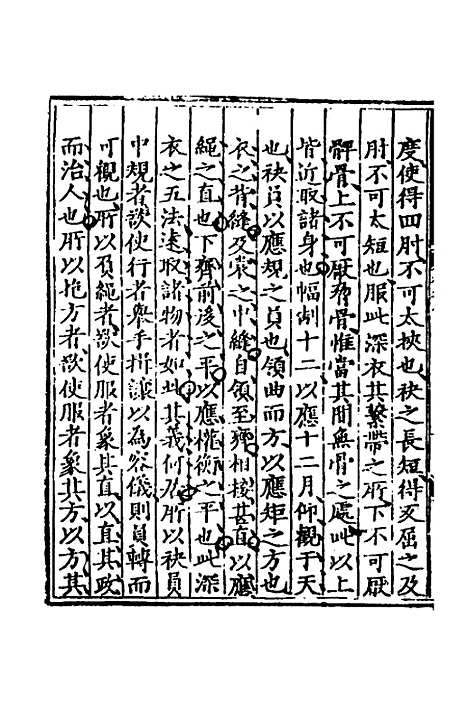 度使得四肘不可太挾也袂之長短得反屈之及
肘不可太短也服此深衣其繫帶之所下不可厭
髀骨上不可厭脅骨惟當其間無骨之處此以上
皆近取諸身也幅制十二以應十二月仰觀于天
也袂員以應規之員也領曲而方以應矩之方也
衣之背縫及裳之中縫自領至齊相接甚直以應
繩之直也下齊前後之平以應權衡之平也此深
衣之五法遠取諸物者如此其義何如所以袂員
中規者欲使行者舉手揖讓以為容儀則員轉而
可觀也所以負繩者欲使服者象其直以直其政
而治人也所以抱方者欲使服者象其方以方其